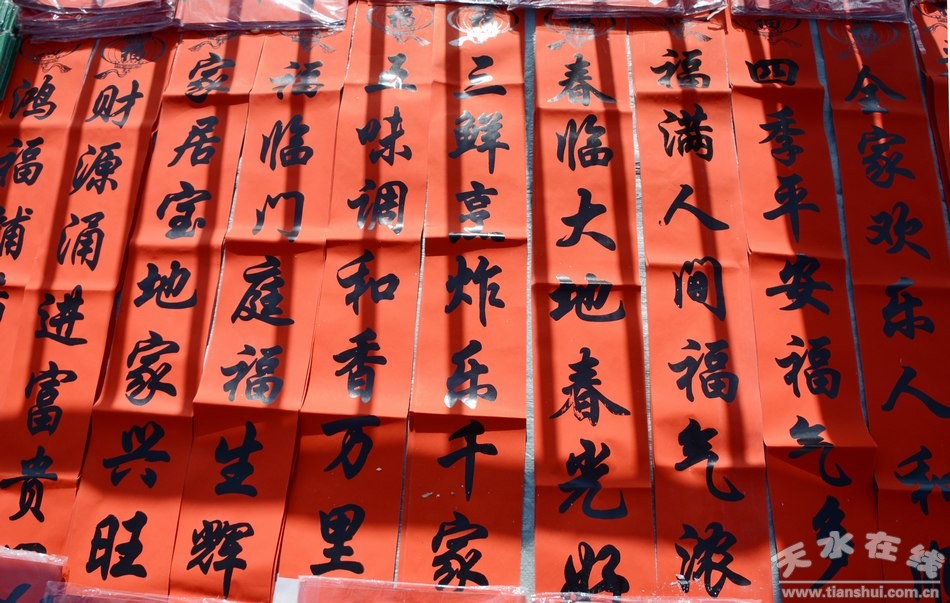 全家欢乐人和
四季平安福气多
福满人间福气浓
春临大地春光好
三鲜烹炸乐千家
五味调和香万里
福临门庭福生辉
家居宝地家兴旺
财源涌进富贵
鸿福
天水在线
www.tianshui.com.cn